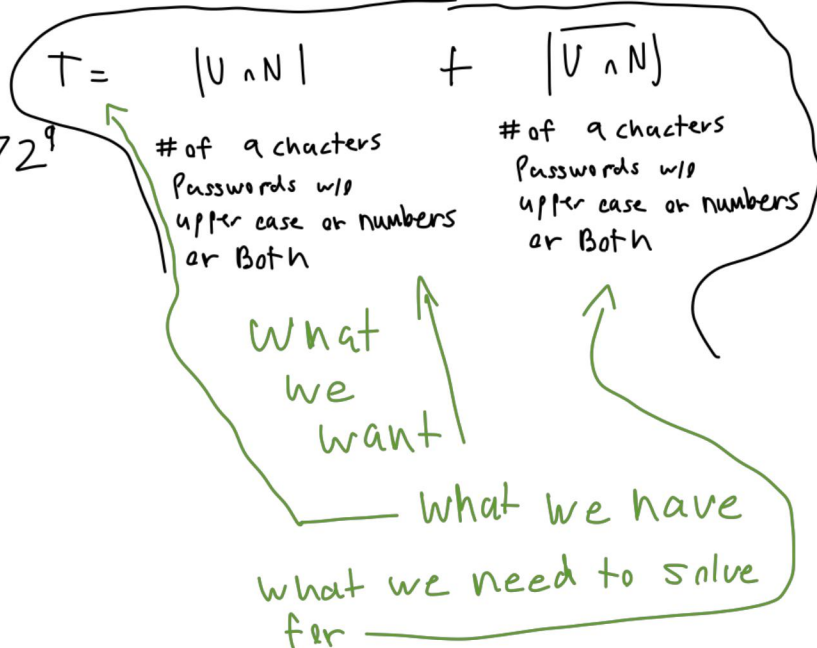 T = |U ∩ N| + |U ∩ N|
72⁹
# of 9 chacters
Passwords w/o
upper case or numbers
or Both
# of 9 chacters
Passwords w/o
upper case or numbers
or Both
what
we
want
what we have
what we need to solve
for